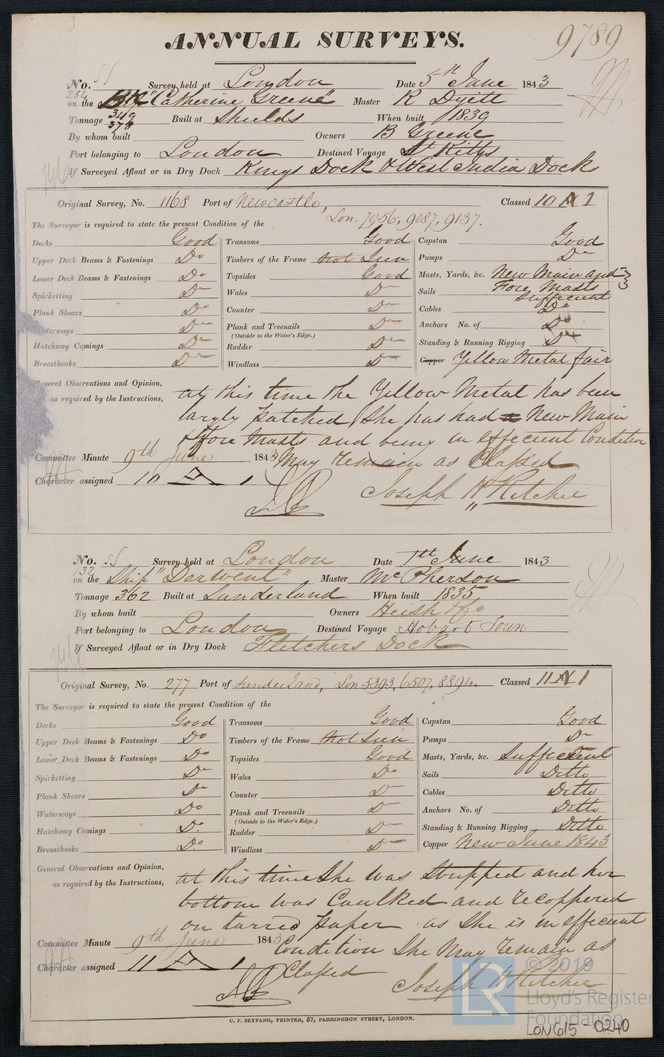 ANNUAL SURVEYS.
9789
No. 55 Survey held at London Date 5th June 1843
on the Bk "Catherine Greene" Master R Dyett
Tonnage 349 374 Built at Shields When built 1839
By whom built Owners B Greene
Port belonging to London Destined Voyage St Kitts
If Surveyed Afloat or in Dry Dock Kings Dock & West India Docks
Original Survey, No. 1168 Port of Newcastle, Lon. 7956, 9087, 9137. Classed 10 A 1
The Surveyor is required to state the present Condition of the
Decks Good Transoms Good Capstan Good
Upper Deck Beams & Fastenings Do Timbers of the Frame not seen Pumps Do
Lower Deck Beams & Fastenings Do Topsides Good Masts, Yards, &c. New Main and Fore Masts
Spirketting Do Wales Do Sails Sufficient
Plank Shears Do Counter Do Cables Do
Waterways Do Plank and Treenails Do Anchors No. of Do
(Outside to the Water's Edge.)
Hatchway Comings Do Rudder Do Standing & Running Rigging Do
Breasthooks Do Windlass Do Copper Yellow Metal fair
General Observations and Opinion, as required by the Instructions,
at this time the Yellow Metal has been
largly patched She has had New Main
& Fore Masts and being in effecient Condition
May remain as Classed
Committee Minute 9th June 1843
Character assigned 10 A 1
Joseph H Ritchie
No. 55 Survey held at London Date 1st June 1843
132 on the Ship "Derwent" Master McPherson
Tonnage 362 Built at Sunderland When built 1835
By whom built Owners
Port belonging to London Destined Voyage Hobart Town
If Surveyed Afloat or in Dry Dock Fletchers Dock
Original Survey, No. 277 Port of Sunderland, Lon 5393, 6507, 8894. Classed 11 A 1
The Surveyor is required to state the present Condition of the
Decks Good Transoms Good Capstan Good
Upper Deck Beams & Fastenings Do Timbers of the Frame not seen Pumps Do
Lower Deck Beams & Fastenings Do Topsides Good Masts, Yards, &c. Sufficient
Spirketting Do Wales Do Sails Ditto
Plank Shears Do Counter Do Cables Ditto
Waterways Do Plank and Treenails Do Anchors No. of Ditto
(Outside to the Water's Edge.)
Hatchway Comings Do Rudder Do Standing & Running Rigging Ditto
Breasthooks Do Windlass Do Copper New June 1843
General Observations and Opinion, as required by the Instructions,
at this time She was Stripped and her
bottom was Caulked and recoppered
on tarred paper as She is in effecient
Condition She May remain as
Classed
Committee Minute 9th June 1843
Character assigned 11 A 1
Joseph H Ritchie
C. F. SEYFANG, PRINTER, 57, FARRINGDON STREET, LONDON.
© 2019
Lloyd's Register
Foundation
LON615-0240